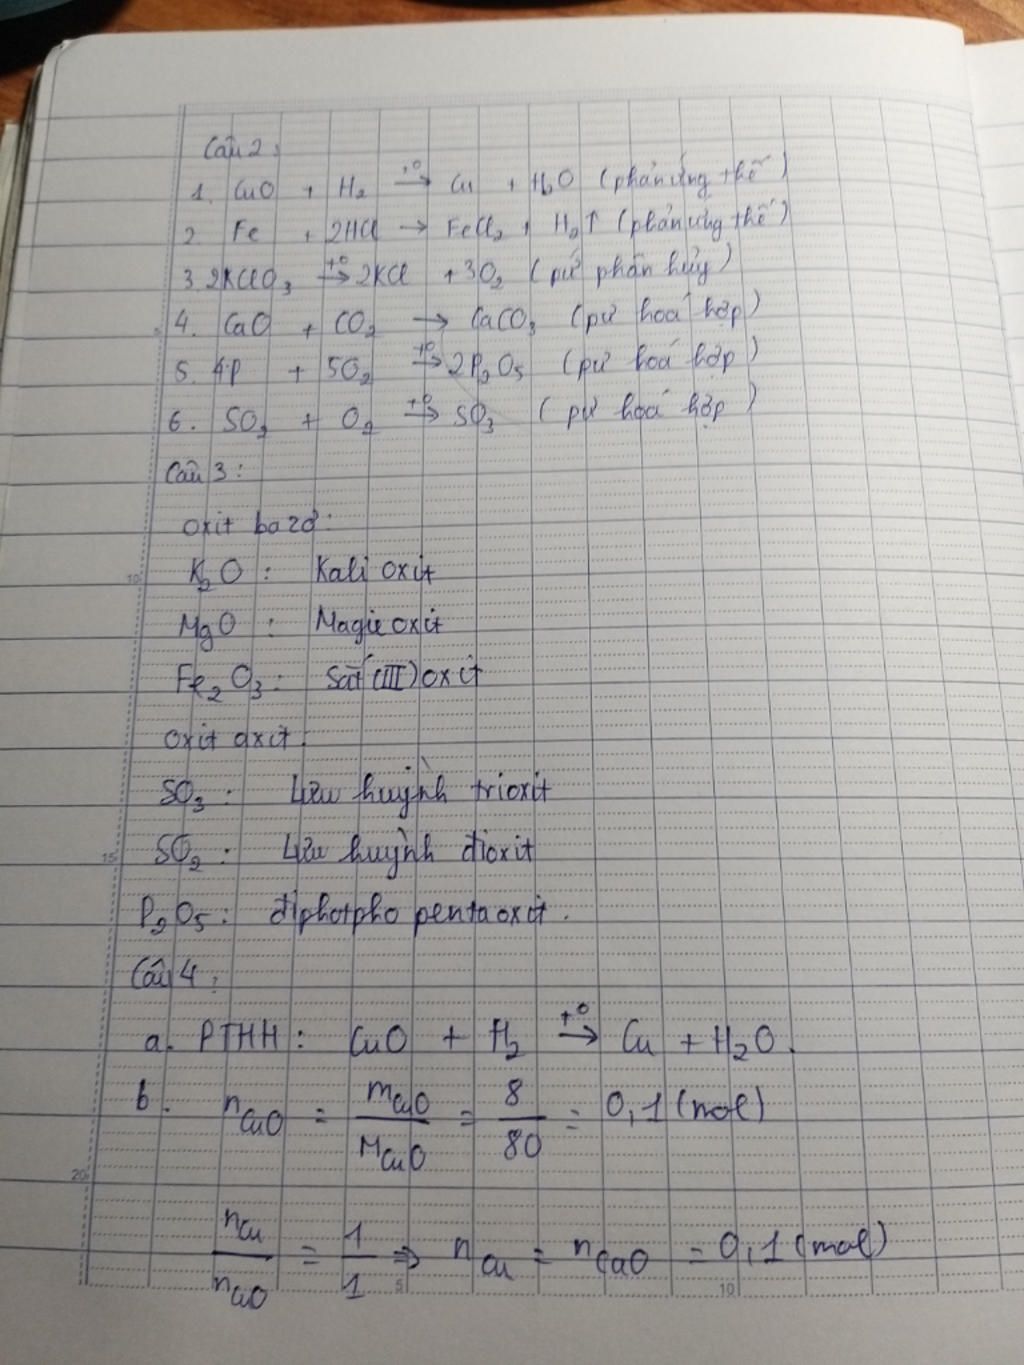 Câu 2:
1. CuO + H₂ →(t⁰) Cu + H₂O (phản ứng thế)
2. Fe + 2HCl → FeCl₂ + H₂↑ (phản ứng thế)
3. 2KClO₃ →(t⁰) 2KCl + 3O₂ (pứ phân hủy)
4. CaO + CO₂ → CaCO₃ (pứ hoá hợp)
5. 4P + 5O₂ →(t⁰) 2P₂O₅ (pứ hoá hợp)
6. SO₂ + O₂ →(t⁰) SO₃ (pứ hoá hợp)
Câu 3:
oxit bazơ:
K₂O : Kali oxit
10
MgO : Magie oxit
Fe₂O₃ : Sắt (III) oxit
oxit axit:
SO₃ : Lưu huỳnh trioxit
SO₂ : Lưu huỳnh đioxit
15
P₂O₅ : điphotpho pentaoxit.
Câu 4:
a. PTHH: CuO + H₂ →(t⁰) Cu + H₂O.
b. nCuO = mCuO / MCuO = 8/80 = 0,1 (mol)
20
nCu / nCuO = 1/1 ⇒ nCu = nCuO = 0,1 (mol)
5 10